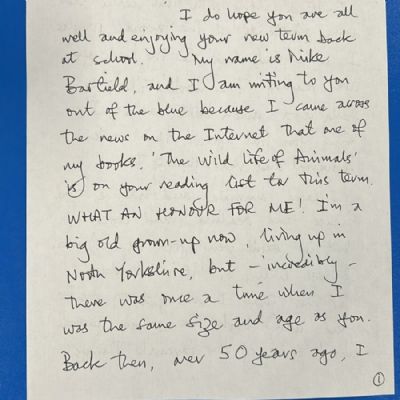 I do hope you are all
well and enjoying your new term back
at school. My name is Mike
Barfield, and I am writing to you
out of the blue because I came across
the news on the Internet that one of
my books. 'The Wild life of Animals'
is on your reading list for this term.
WHAT AN HONOUR FOR ME! I'm a
big old grown-up now, living up in
North Yorkshire, but – incredibly –
there was once a time when I
was the same size and age as you.
Back then, over 50 years ago, I
1